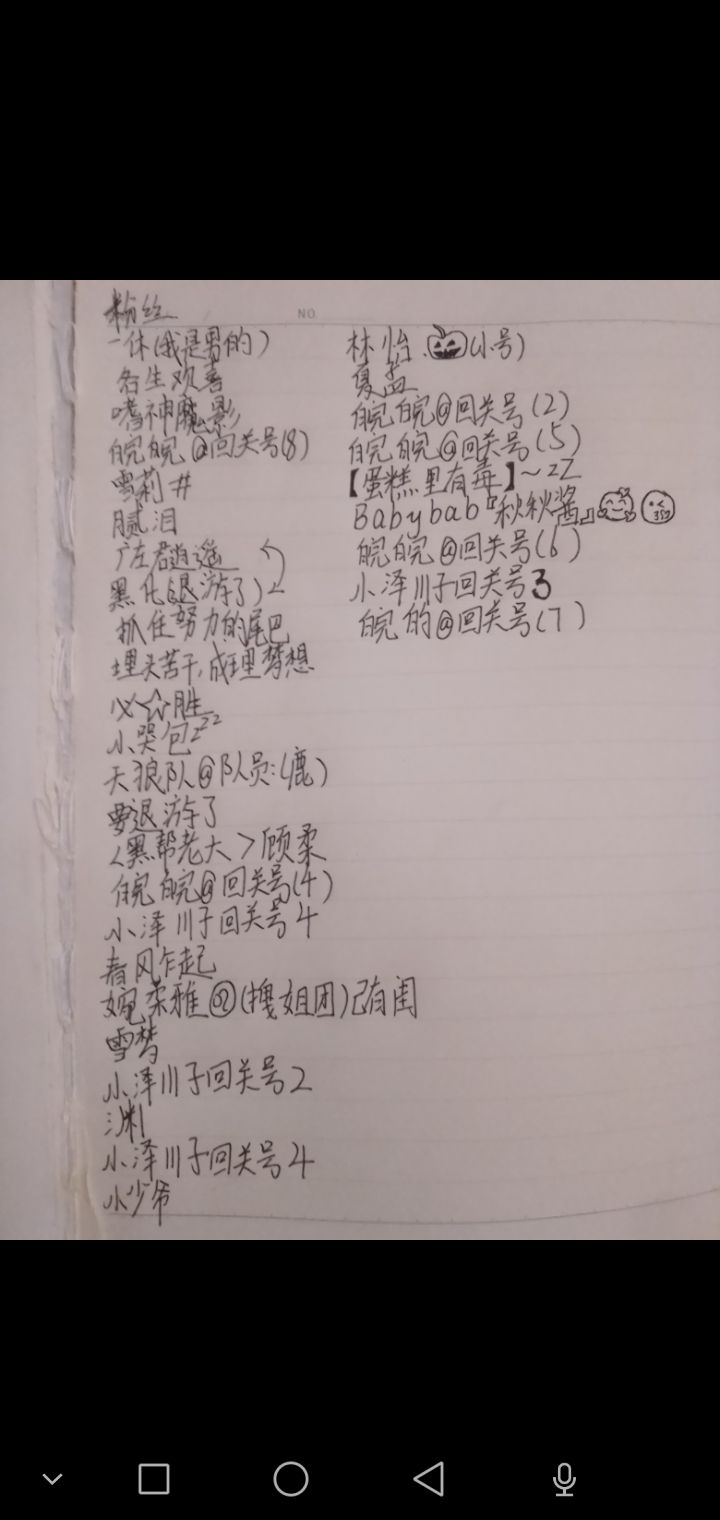 粉丝
NO.
一休(我是男的)
各生欢喜
嗜神魔影
皖皖@回关号(8)
雪莉#
腻泪
左君逍遥
黑化(退游了)
抓住努力的尾巴
埋头苦干,成理梦想
必☆胜
小哭包zzz
天狼队@队员:(鹿)
要退游了
<黑帮老大>顾柔
皖皖@回关号(4)
小泽川子回关号4
春风乍起
婉柔雅@(拽姐团)已有闺
雪梦
小泽川子回关号2
渊
小泽川子回关号4
小少爷
林怡.🎃(小号)
夏蓝
皖皖@回关号(2)
皖皖@回关号(5)
【蛋糕里有毒】~zZ
Babybab『秋秋酱』
皖皖@回关号(6)
小泽川子回关号3
皖的@回关号(7)